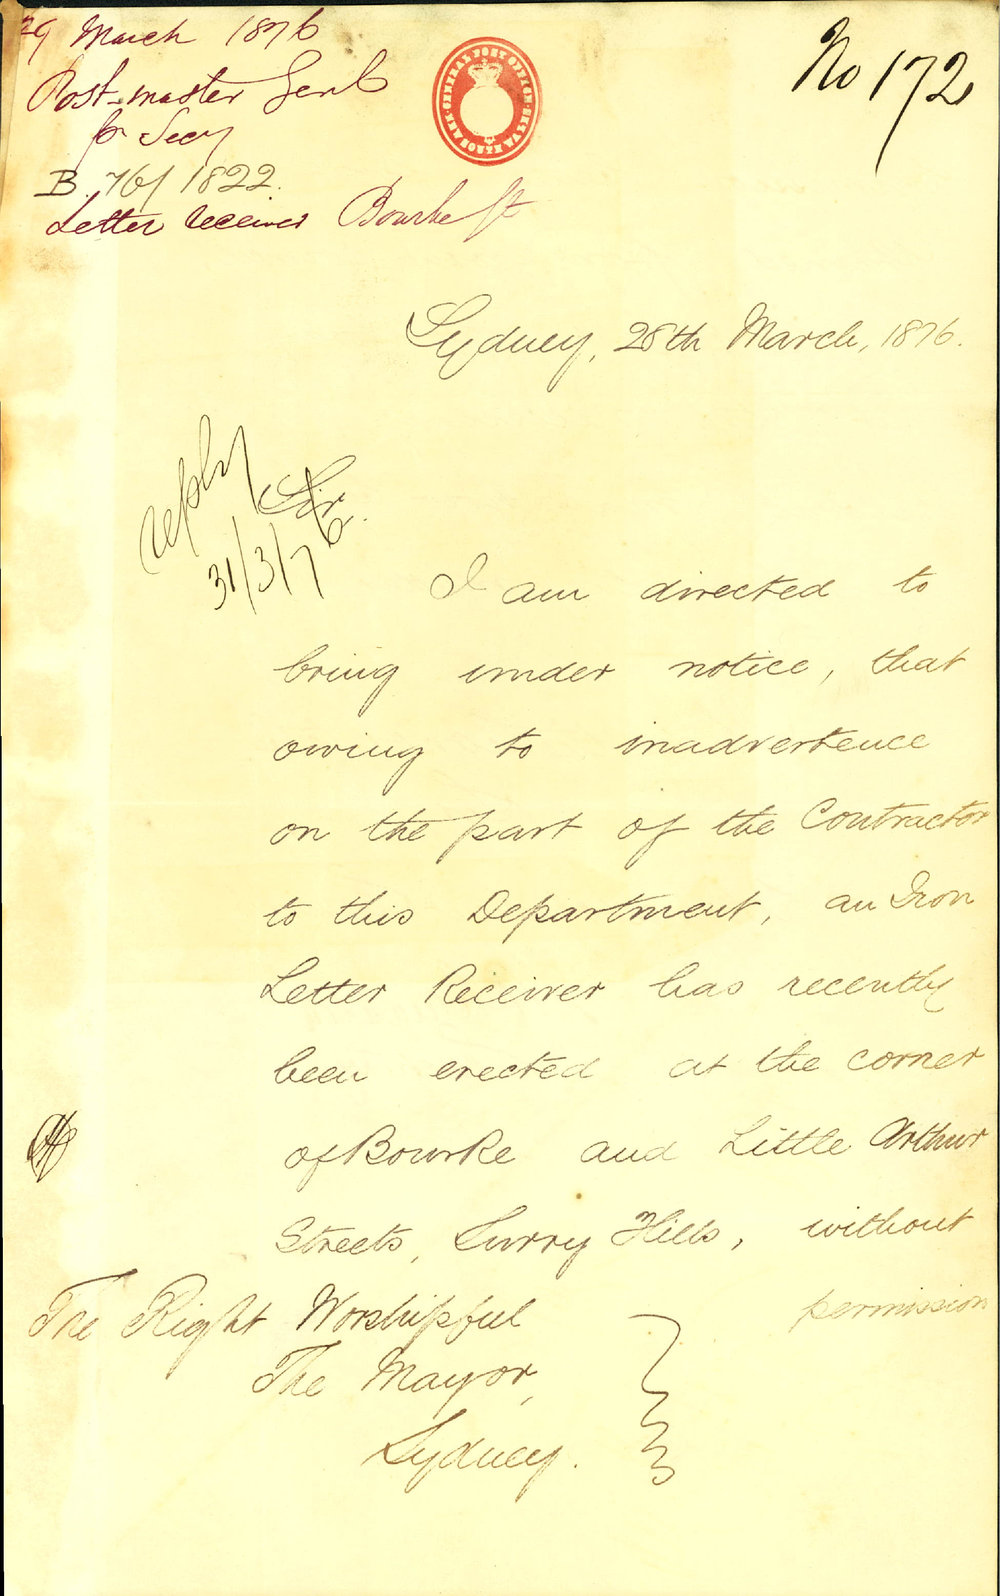 29 March 1876
Post-master Genl
for Secy
B. 76/1822.
Letter receiver Bourke St
No 172
GENERAL POST OFFICE
Sydney, 28th March, 1876.
reply
31/3/76
Sir.
I am directed to
bring under notice, that
owing to inadvertence
on the part of the Contractor
to this Department, an Iron
Letter Receiver has recently
been erected at the corner
of Bourke and Little Arthur
Streets, Surry Hills, without
permission
The Right Worshipful
The Mayor,
Sydney.